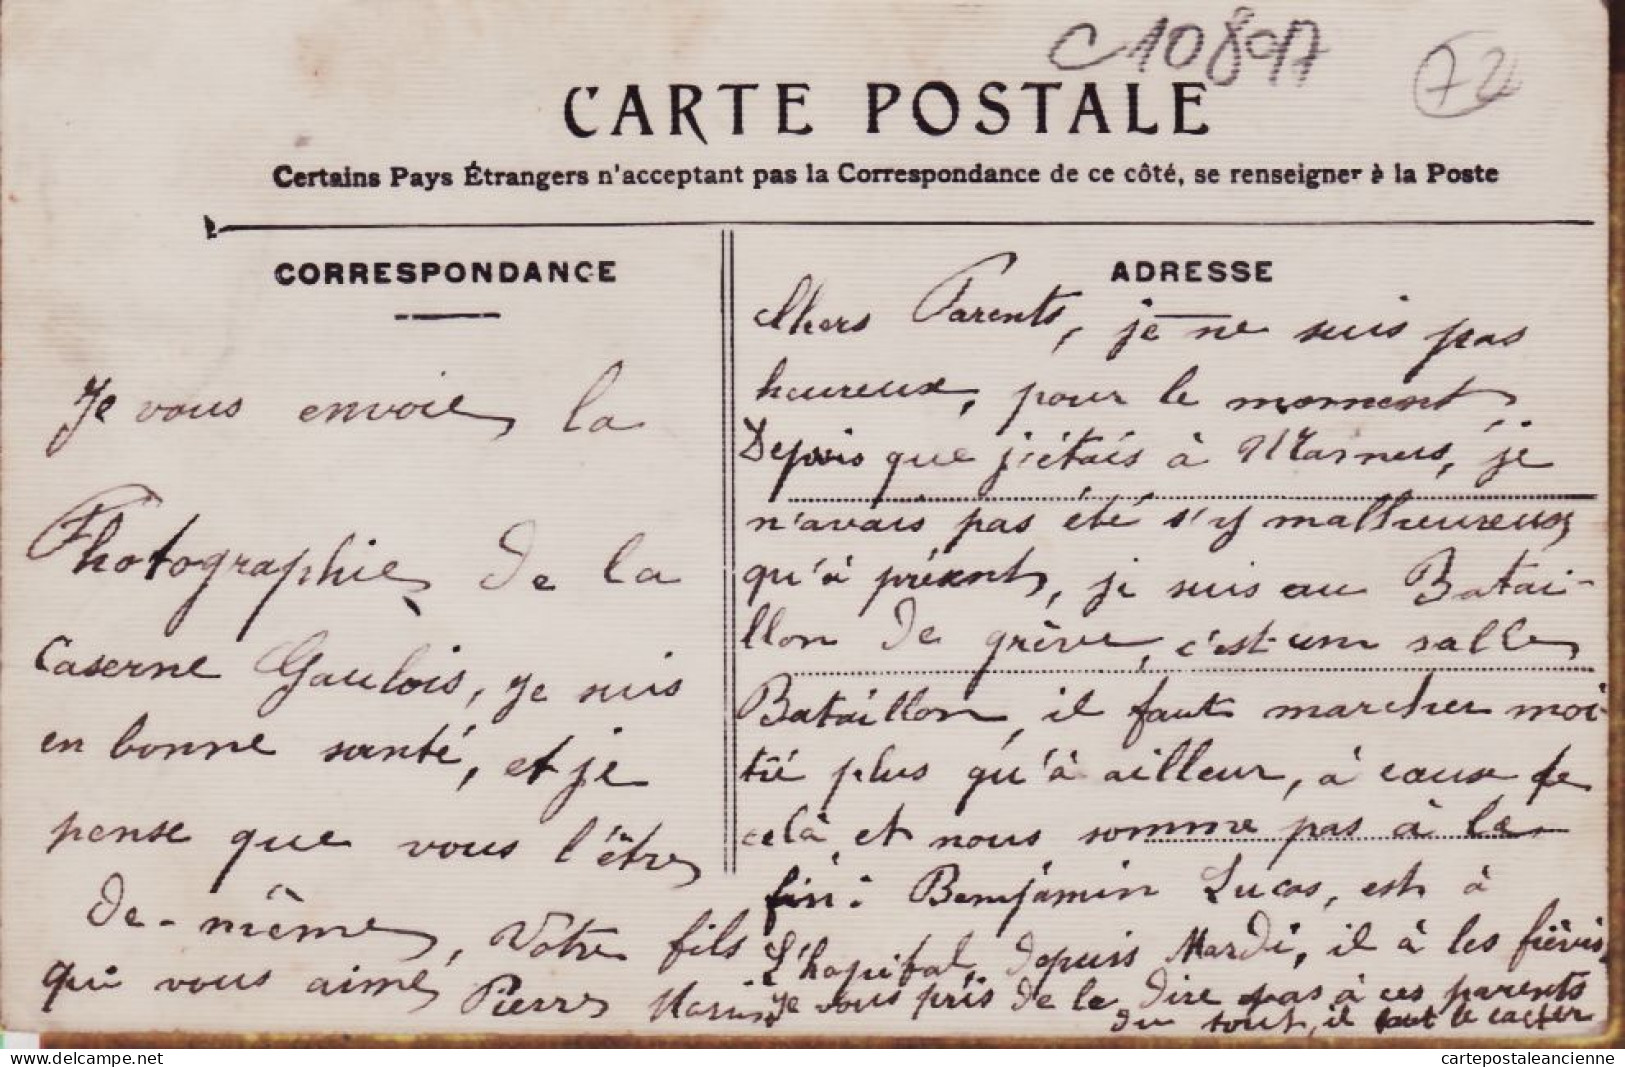 C10897
72
CARTE POSTALE
Certains Pays Étrangers n'acceptant pas la Correspondance de ce côté, se renseigner à la Poste
CORRESPONDANCE
Je vous envoie la
Photographie de la
Caserne Gaulois, je suis
en bonne santé, et je
pense que vous l'être
de-même, Votre fils
qui vous aime Pierre
ADRESSE
Chers Parents, je ne suis pas
heureux, pour le moment,
Depuis que j'étais à je
n'avais pas été s'y malheureux
qu'à présent, je suis au Batai-
llon de grève, c'est un salle
Bataillon, il faut marcher moi-
tié plus qu'à ailleur, à cause de
celà, et nous somme pas à la
fin: Benjamin Lucas, est à
L'hopital, depuis Mardi, il à les fièvres,
Je vous pris de le dire pas à ces parents
du tout, il faut le cacher
cartepostaleancienne